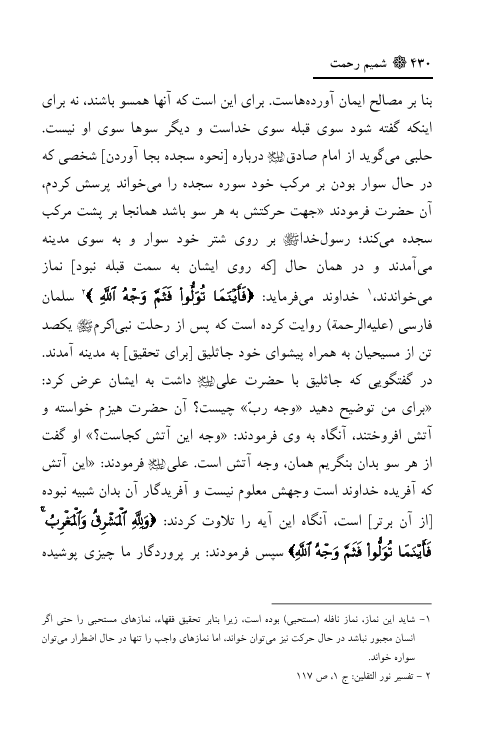 ۴۳۰ ❁ شمیم رحمت
بنا بر مصالح ایمان آورده‌هاست. برای این است که آنها همسو باشند، نه برای
اینکه گفته شود سوی قبله سوی خداست و دیگر سوها سوی او نیست.
حلبی می‌گوید از امام صادق؈ درباره [نحوه سجده بجا آوردن] شخصی که
در حال سوار بودن بر مرکب خود سوره سجده را می‌خواند پرسش کردم،
آن حضرت فرمودند «جهت حرکتش به هر سو باشد همانجا بر پشت مرکب
سجده می‌کند؛ رسول‌خداﷺ بر روی شتر خود سوار و به سوی مدینه
می‌آمدند و در همان حال [که روی ایشان به سمت قبله نبود] نماز
می‌خواندند،۱ خداوند می‌فرماید: ﴿فَأَيْنَمَا تُوَلُّواْ فَثَمَّ وَجْهُ ٱللَّهِ﴾۲ سلمان
فارسی (علیه‌الرحمة) روایت کرده است که پس از رحلت نبی‌اکرمﷺ یکصد
تن از مسیحیان به همراه پیشوای خود جاثلیق [برای تحقیق] به مدینه آمدند.
در گفتگویی که جاثلیق با حضرت علی؈ داشت به ایشان عرض کرد:
«برای من توضیح دهید «وجه ربّ» چیست؟ آن حضرت هیزم خواسته و
آتش افروختند، آنگاه به وی فرمودند: «وجه این آتش کجاست؟» او گفت
از هر سو بدان بنگریم همان، وجه آتش است. علی؈ فرمودند: «این آتش
که آفریده خداوند است وجهش معلوم نیست و آفریدگار آن بدان شبیه نبوده
[از آن برتر] است، آنگاه این آیه را تلاوت کردند: ﴿وَلِلَّهِ ٱلْمَشْرِقُ وَٱلْمَغْرِبُۚ
فَأَيْنَمَا تُوَلُّواْ فَثَمَّ وَجْهُ ٱللَّهِ﴾ سپس فرمودند: بر پروردگار ما چیزی پوشیده
۱- شاید این نماز، نماز نافله (مستحبی) بوده است، زیرا بنابر تحقیق فقهاء، نمازهای مستحبی را حتی اگر
انسان مجبور نباشد در حال حرکت نیز می‌توان خواند، اما نمازهای واجب را تنها در حال اضطرار می‌توان
سواره خواند.
۲ - تفسیر نور الثقلین: ج ۱، ص ۱۱۷